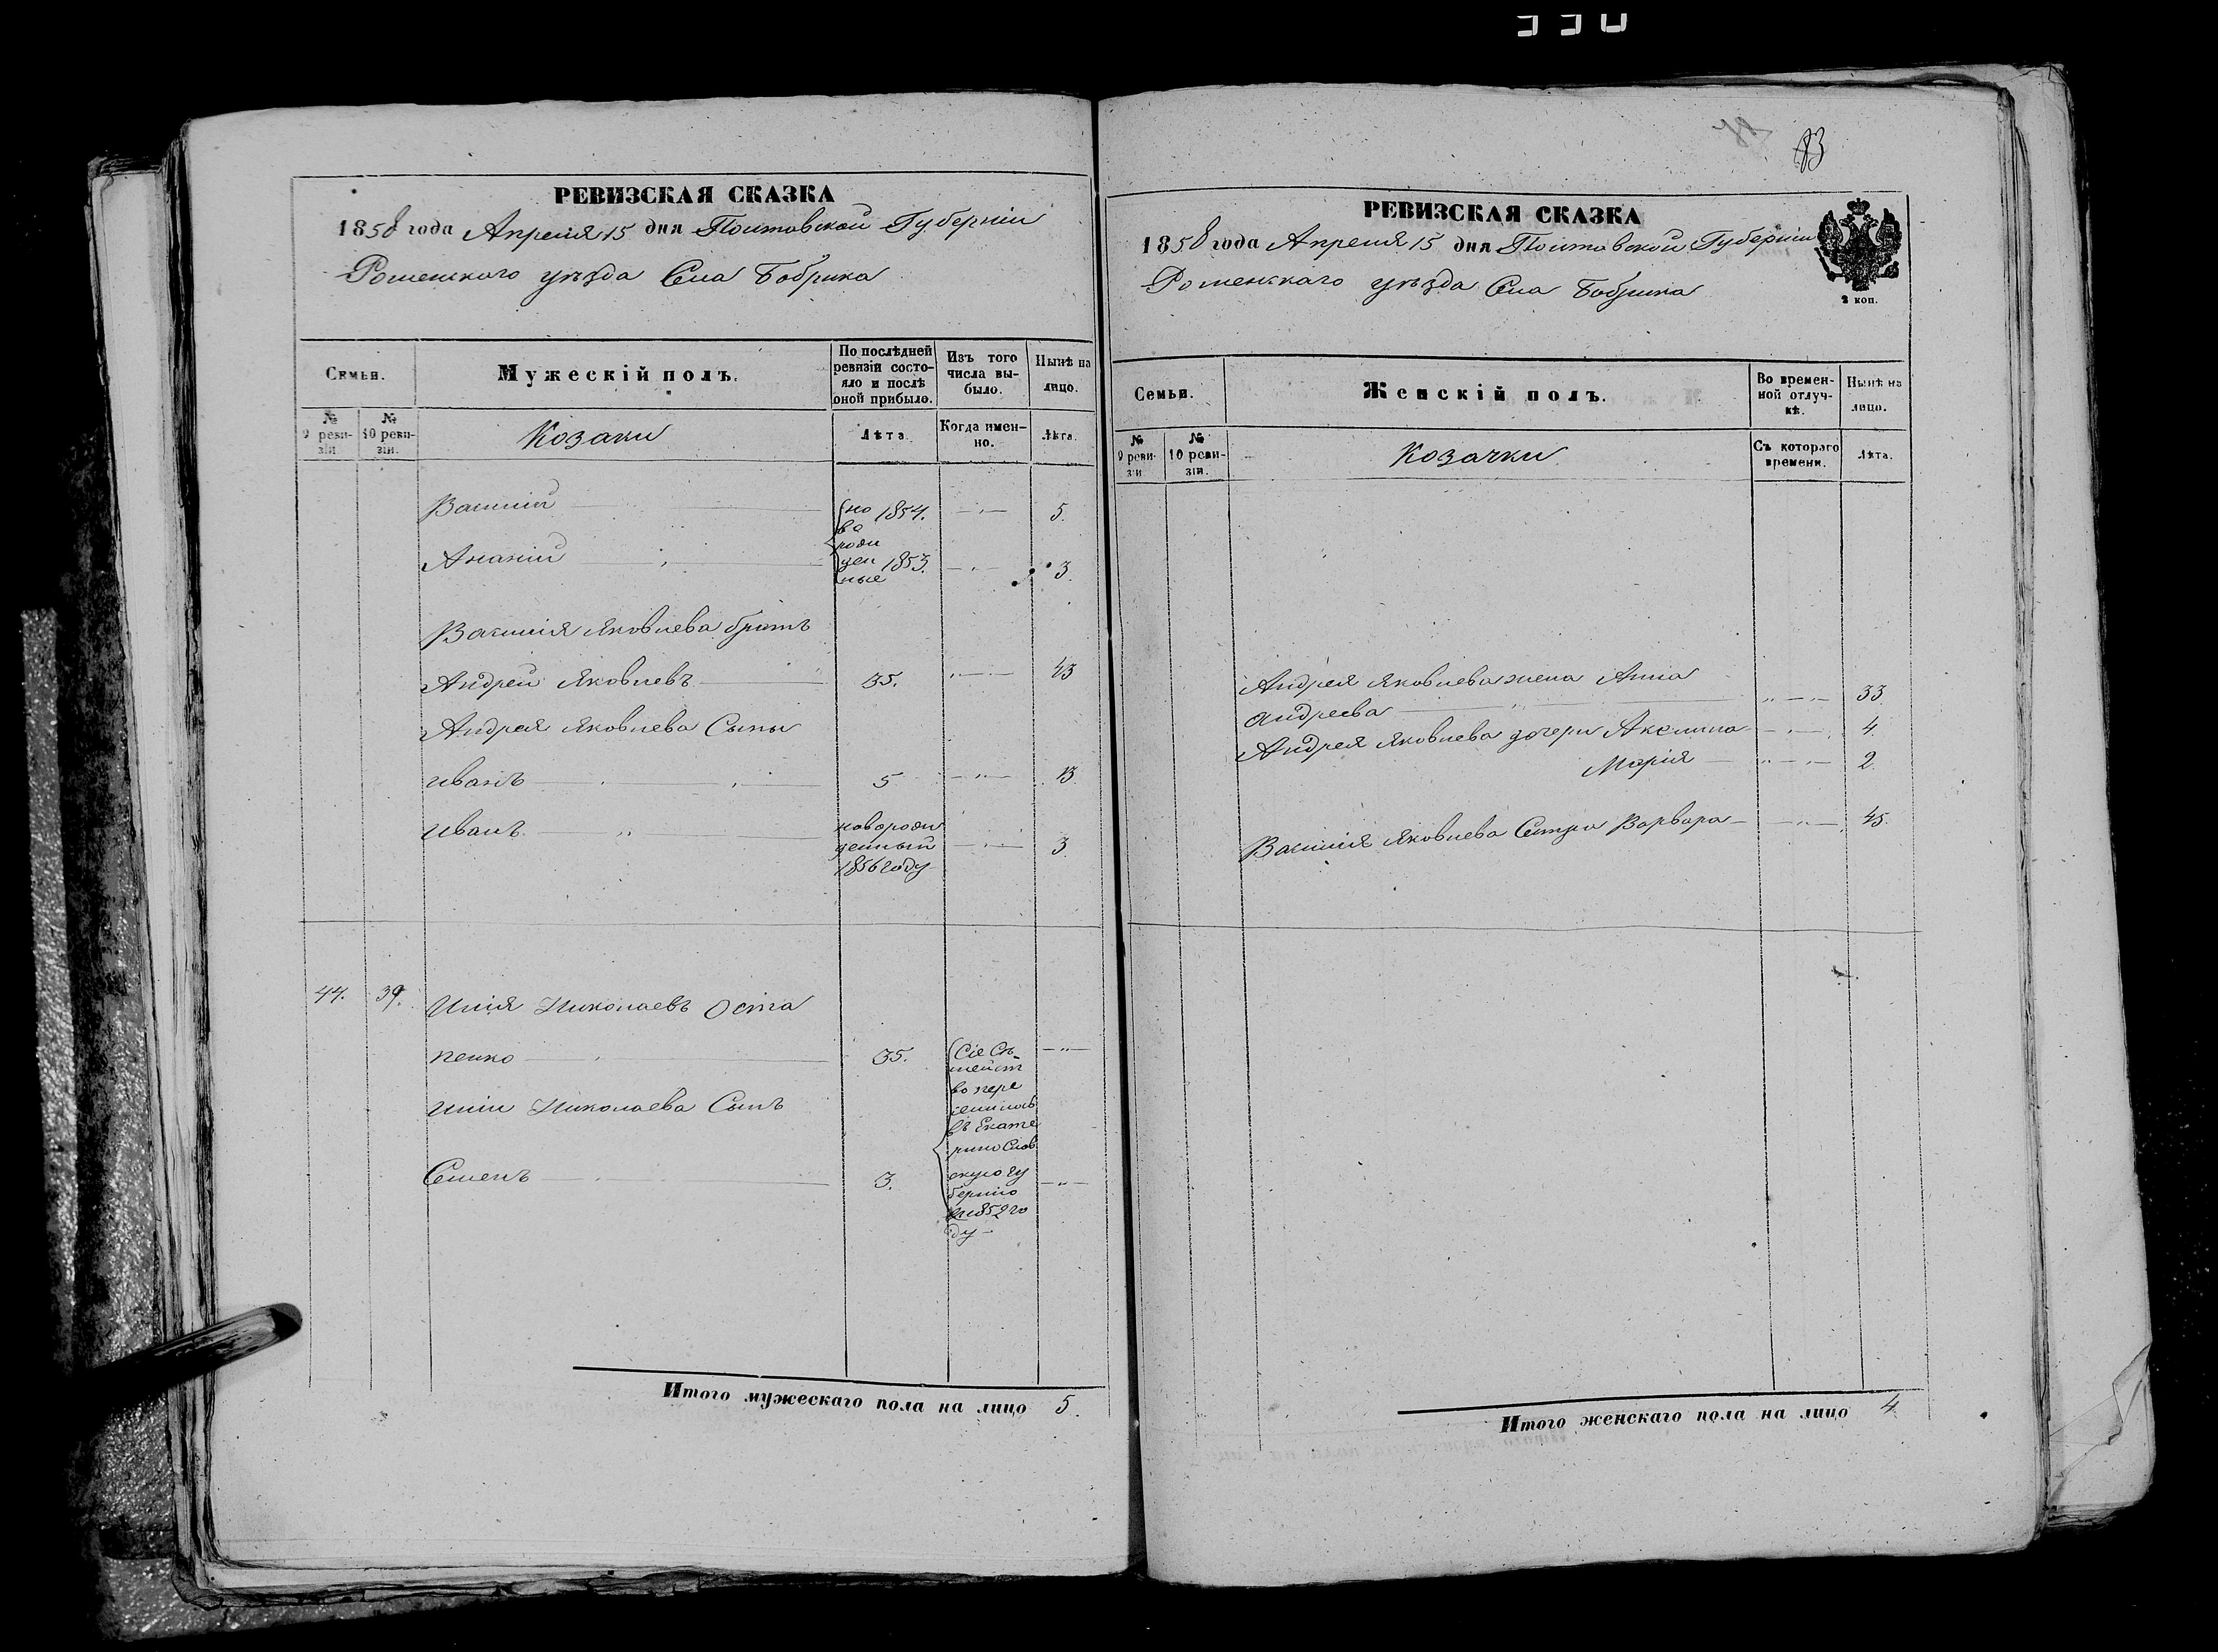 83
РЕВИЗСКАЯ СКАЗКА
1858 года Апреля 15 дня Полтавской Губерніи
Роменскаго уѣзда Села Бобрика
Семьи.
Мужескій полъ.
По послѣдней ревизіи состояло и послѣ оной прибыло.
Изъ того числа выбыло.
Нынѣ на лицо.
№ 9 ревизіи
№ 10 ревизіи.
Козаки
Лѣта
Когда именно.
Лѣта.
Василий 1854. 5.
Ананий 1853. 3.
новорожденные
Василия Яковлева братъ
Андрей Яковлевъ 35. 43
Андрея Яковлева Сыны
Иванъ 5 13.
Иванъ новорожденный 1856 году 3
44. 39. Илія Николаевъ Оста
пенко 35.
Иліи Николаева Сынъ
Семенъ 3.
Сіе Се-
мейст
во пере
селилось
въ Екате
ринослав
скую гу
бернію
1852 го
ду
Итого мужескаго пола на лицо 5.
РЕВИЗСКАЯ СКАЗКА
1858 года Апреля 15 дня Полтавской Губерніи
Роменскаго уѣзда Села Бобрика
2 коп.
Семьи.
Женскій полъ.
Во временной отлучкѣ.
Нынѣ на лицо.
№ 9 ревизіи
№ 10 ревизіи.
Козачки
Съ котораго времени.
Лѣта.
Андрея Яковлева жена Анна
Андреева 33
Андрея Яковлева дочери Акелина 4
Марія 2.
Василія Яковлева Сестра Варвара 45.
Итого женскаго пола на лицо 4